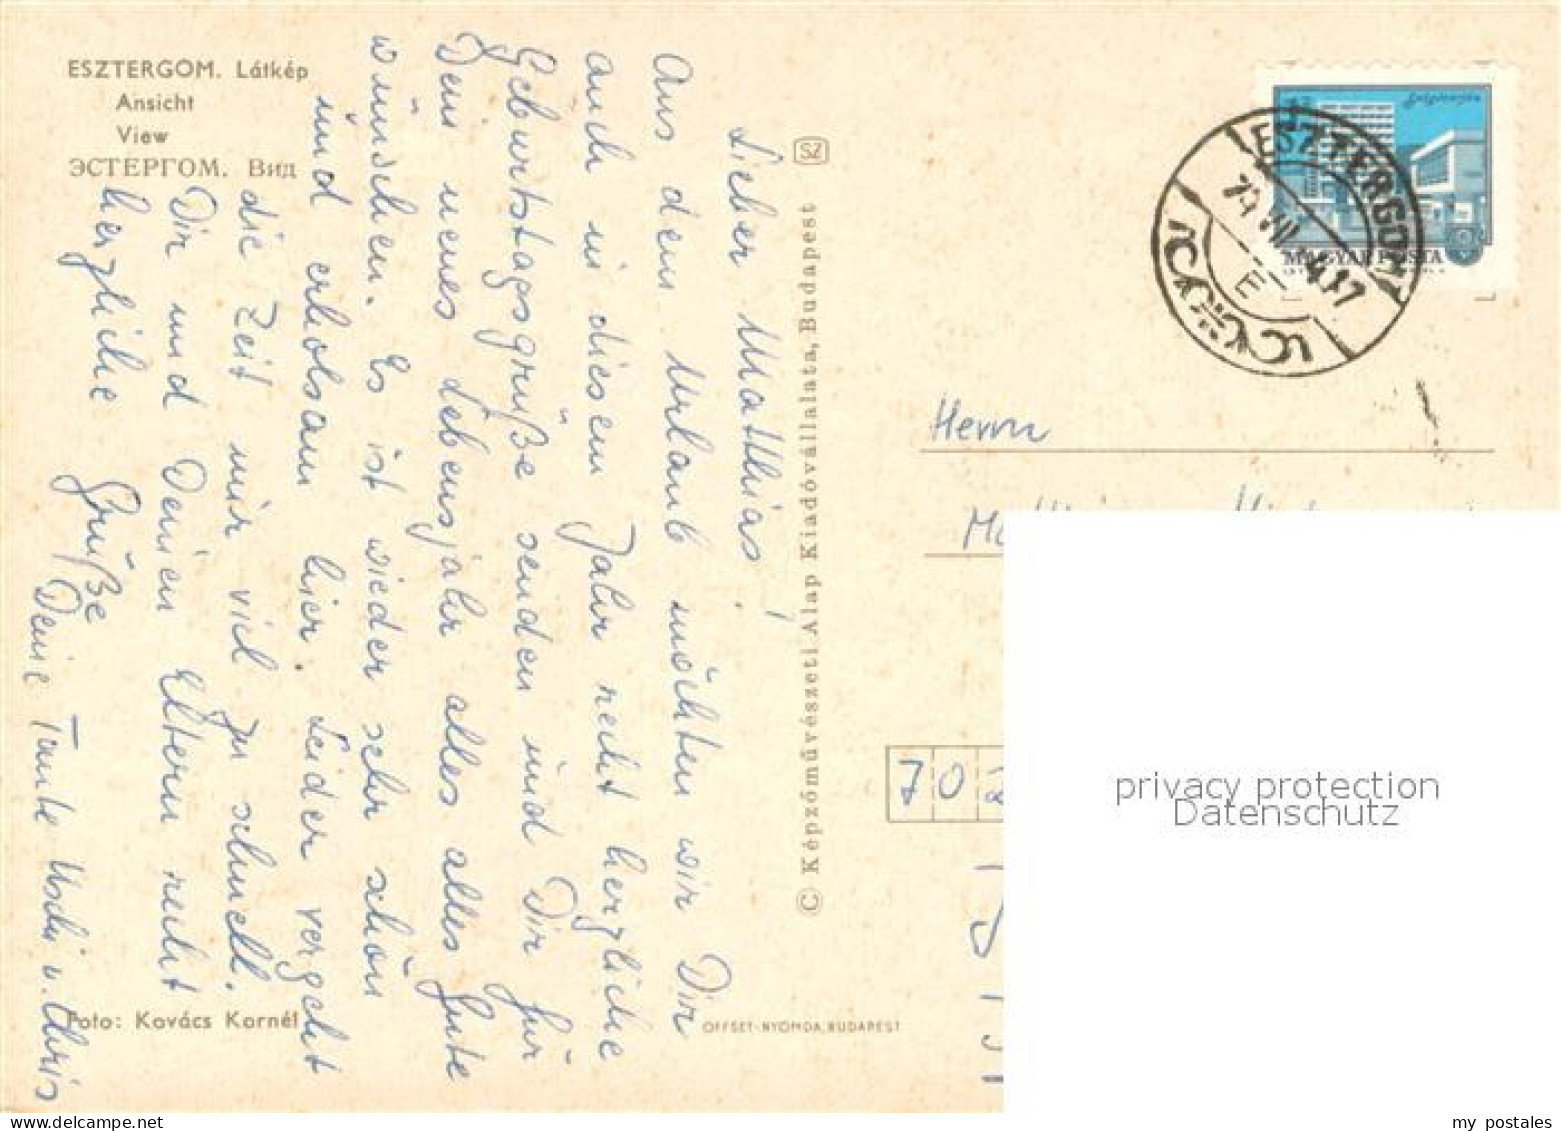 ESZTERGOM. Látkép
Ansicht
View
ЭСТЕРГОМ. Вид
Lieber Matthias!
Aus dem Urlaub möchten wir Dir
auch in diesem Jahr recht herzliche
Geburtstagsgrüße senden und Dir für
Dein neues Lebensjahr alles alles Gute
wünschen. Es ist wieder sehr schön
und erholsam hier. Leider vergeht
die Zeit nur viel zu schnell.
Dir und Deinen Eltern recht
herzliche Grüße
Deine Tante Uschi u. Chris
Foto: Kovács Kornél
© Képzőművészeti Alap Kiadóvállalata, Budapest
SZ
OFFSET-NYOMDA, BUDAPEST
MAGYAR POSTA
ESZTERGOM
Herrn
70
privacy protection
Datenschutz
my postales